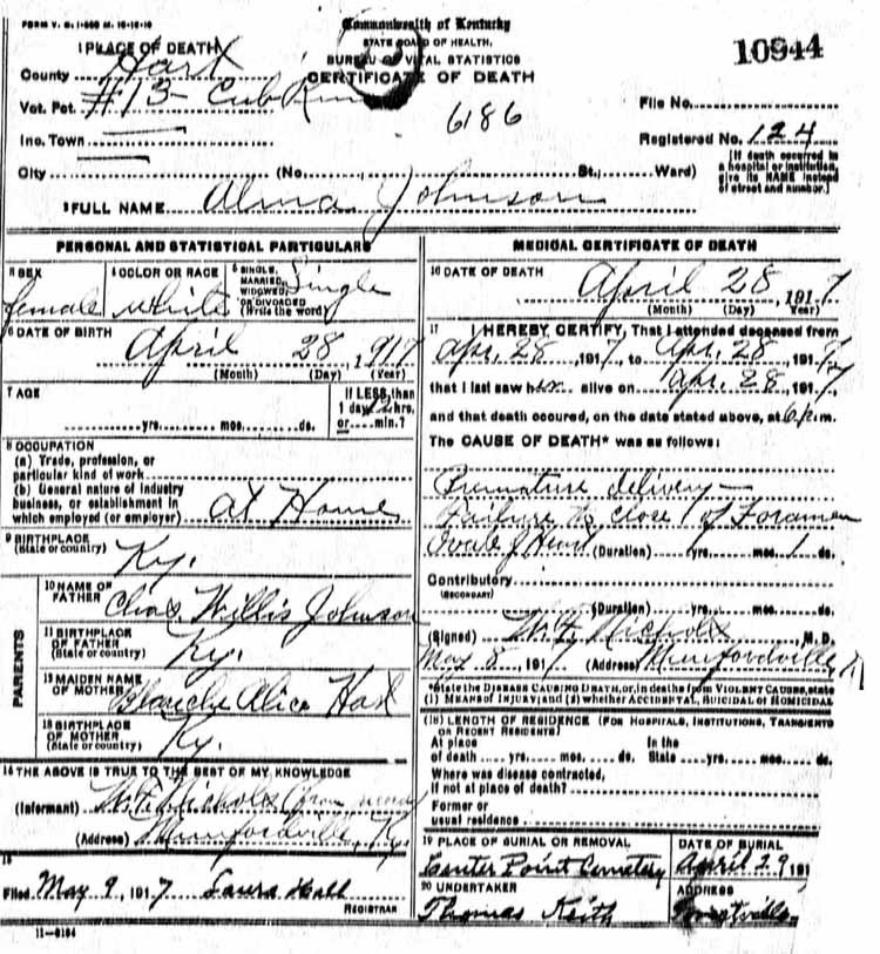 FORM V. S. 1-
Commonwealth of Kentucky
STATE BOARD OF HEALTH,
BUREAU OF VITAL STATISTICS
CERTIFICATE OF DEATH
10944
1 PLACE OF DEATH
County Hart
Vot. Pct. #13- Cub Run
6186
File No.
Inc. Town
Registered No. 124
City (No. St., Ward)
[If death occurred in a hospital or institution, give its NAME instead of street and number.]
2 FULL NAME Alma Johnson
PERSONAL AND STATISTICAL PARTICULARS
3 SEX female
4 COLOR OR RACE white
5 SINGLE, MARRIED, WIDOWED, OR DIVORCED (Write the word) Single
6 DATE OF BIRTH
April 28, 1917
(Month) (Day) (Year)
7 AGE
yrs. mos. ds.
If LESS than
1 day 12 hrs.
or min.?
8 OCCUPATION
(a) Trade, profession, or
particular kind of work
(b) General nature of industry
business, or establishment in
which employed (or employer) At Home
9 BIRTHPLACE
(State or country) Ky.
PARENTS
10 NAME OF
FATHER Chas. Willis Johnson
11 BIRTHPLACE
OF FATHER
(State or country) Ky.
12 MAIDEN NAME
OF MOTHER Blanche Alice
13 BIRTHPLACE
OF MOTHER
(State or country) Ky.
14 THE ABOVE IS TRUE TO THE BEST OF MY KNOWLEDGE
(Informant) W. F. Nichols (from
(Address) Munfordville, Ky.
15
Filed May 9, 1917 Laura Hall
REGISTRAR
11-
MEDICAL CERTIFICATE OF DEATH
16 DATE OF DEATH
April 28, 1917
(Month) (Day) Year)
17 I HEREBY CERTIFY, That I attended deceased from
Apr. 28, 1917, to Apr. 28, 1917,
that I last saw her alive on Apr. 28, 1917,
and that death occured, on the date stated above, at 6 p.m.
The CAUSE OF DEATH* was as follows:
Premature delivery-
Failure to close of Foramen
Ovale of Heart (Duration) yrs. mos. 1 ds.
Contributory
(SECONDARY)
(Duration) yrs. mos. ds.
(Signed) W. F. Nichols, M. D.
May 8, 1917 (Address) Munfordville,
*State the DISEASE CAUSING DEATH, or, in deaths from VIOLENT CAUSES, state
(1) MEANS OF INJURY; and (2) whether ACCIDENTAL, SUICIDAL or HOMICIDAL
(18) LENGTH OF RESIDENCE (FOR HOSPITALS, INSTITUTIONS, TRANSIENTS
OR RECENT RESIDENTS)
At place In the
of death yrs. mos. ds. State yrs. mos. ds.
Where was disease contracted,
If not at place of death?
Former or
usual residence
19 PLACE OF BURIAL OR REMOVAL
Center Point Cemetery
DATE OF BURIAL
April 29 191
20 UNDERTAKER
Thomas Keith
ADDRESS